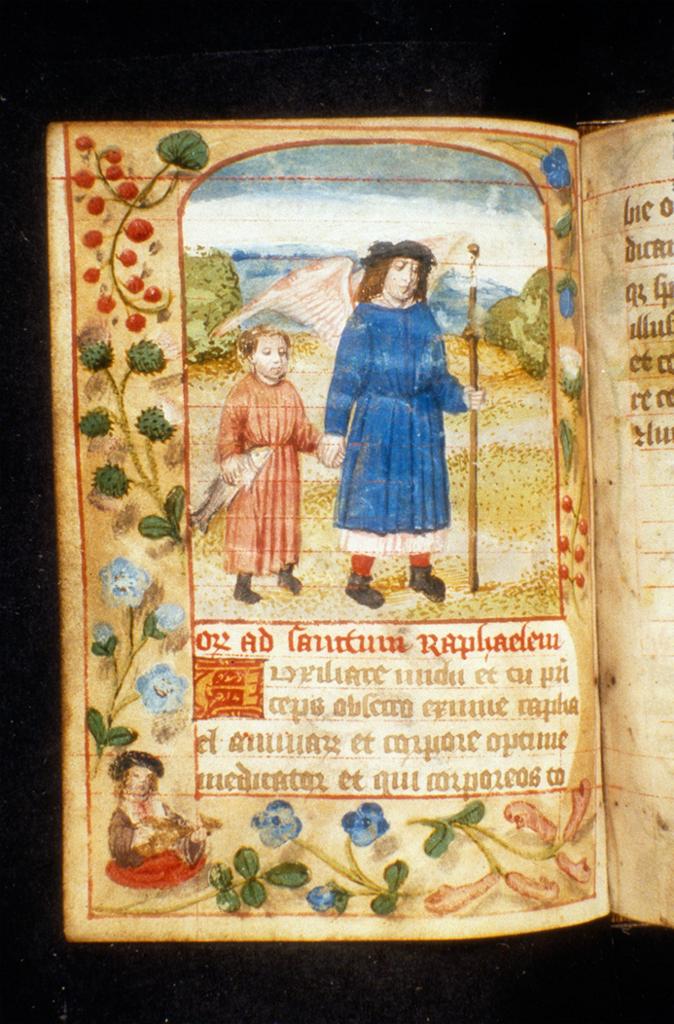 or ad sanctum Raphaelem
Auxiliare michi et tu pri
ceps obsecro eximie rapha
el animar et corpore optime
medicator et qui corporeos to
bie o
dica
qz sp
illus
et co
re ce